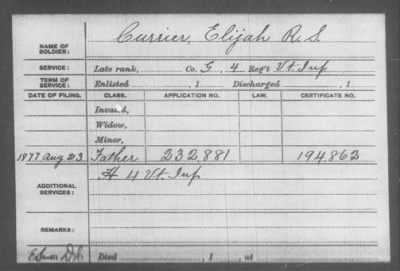 NAME OF SOLDIER: Currier, Elijah R. S.
SERVICE: Late rank, Co. G, 4 Reg't Vt. Inf
TERM OF SERVICE: Enlisted , 1 Discharged , 1
DATE OF FILING. CLASS. APPLICATION NO. LAW. CERTIFICATE NO.
Invalid,
Widow,
Minor,
1877 Aug 23 Father 232.881 194.862
ADDITIONAL SERVICES: H 4 Vt. Inf
REMARKS:
Died , 1 , at